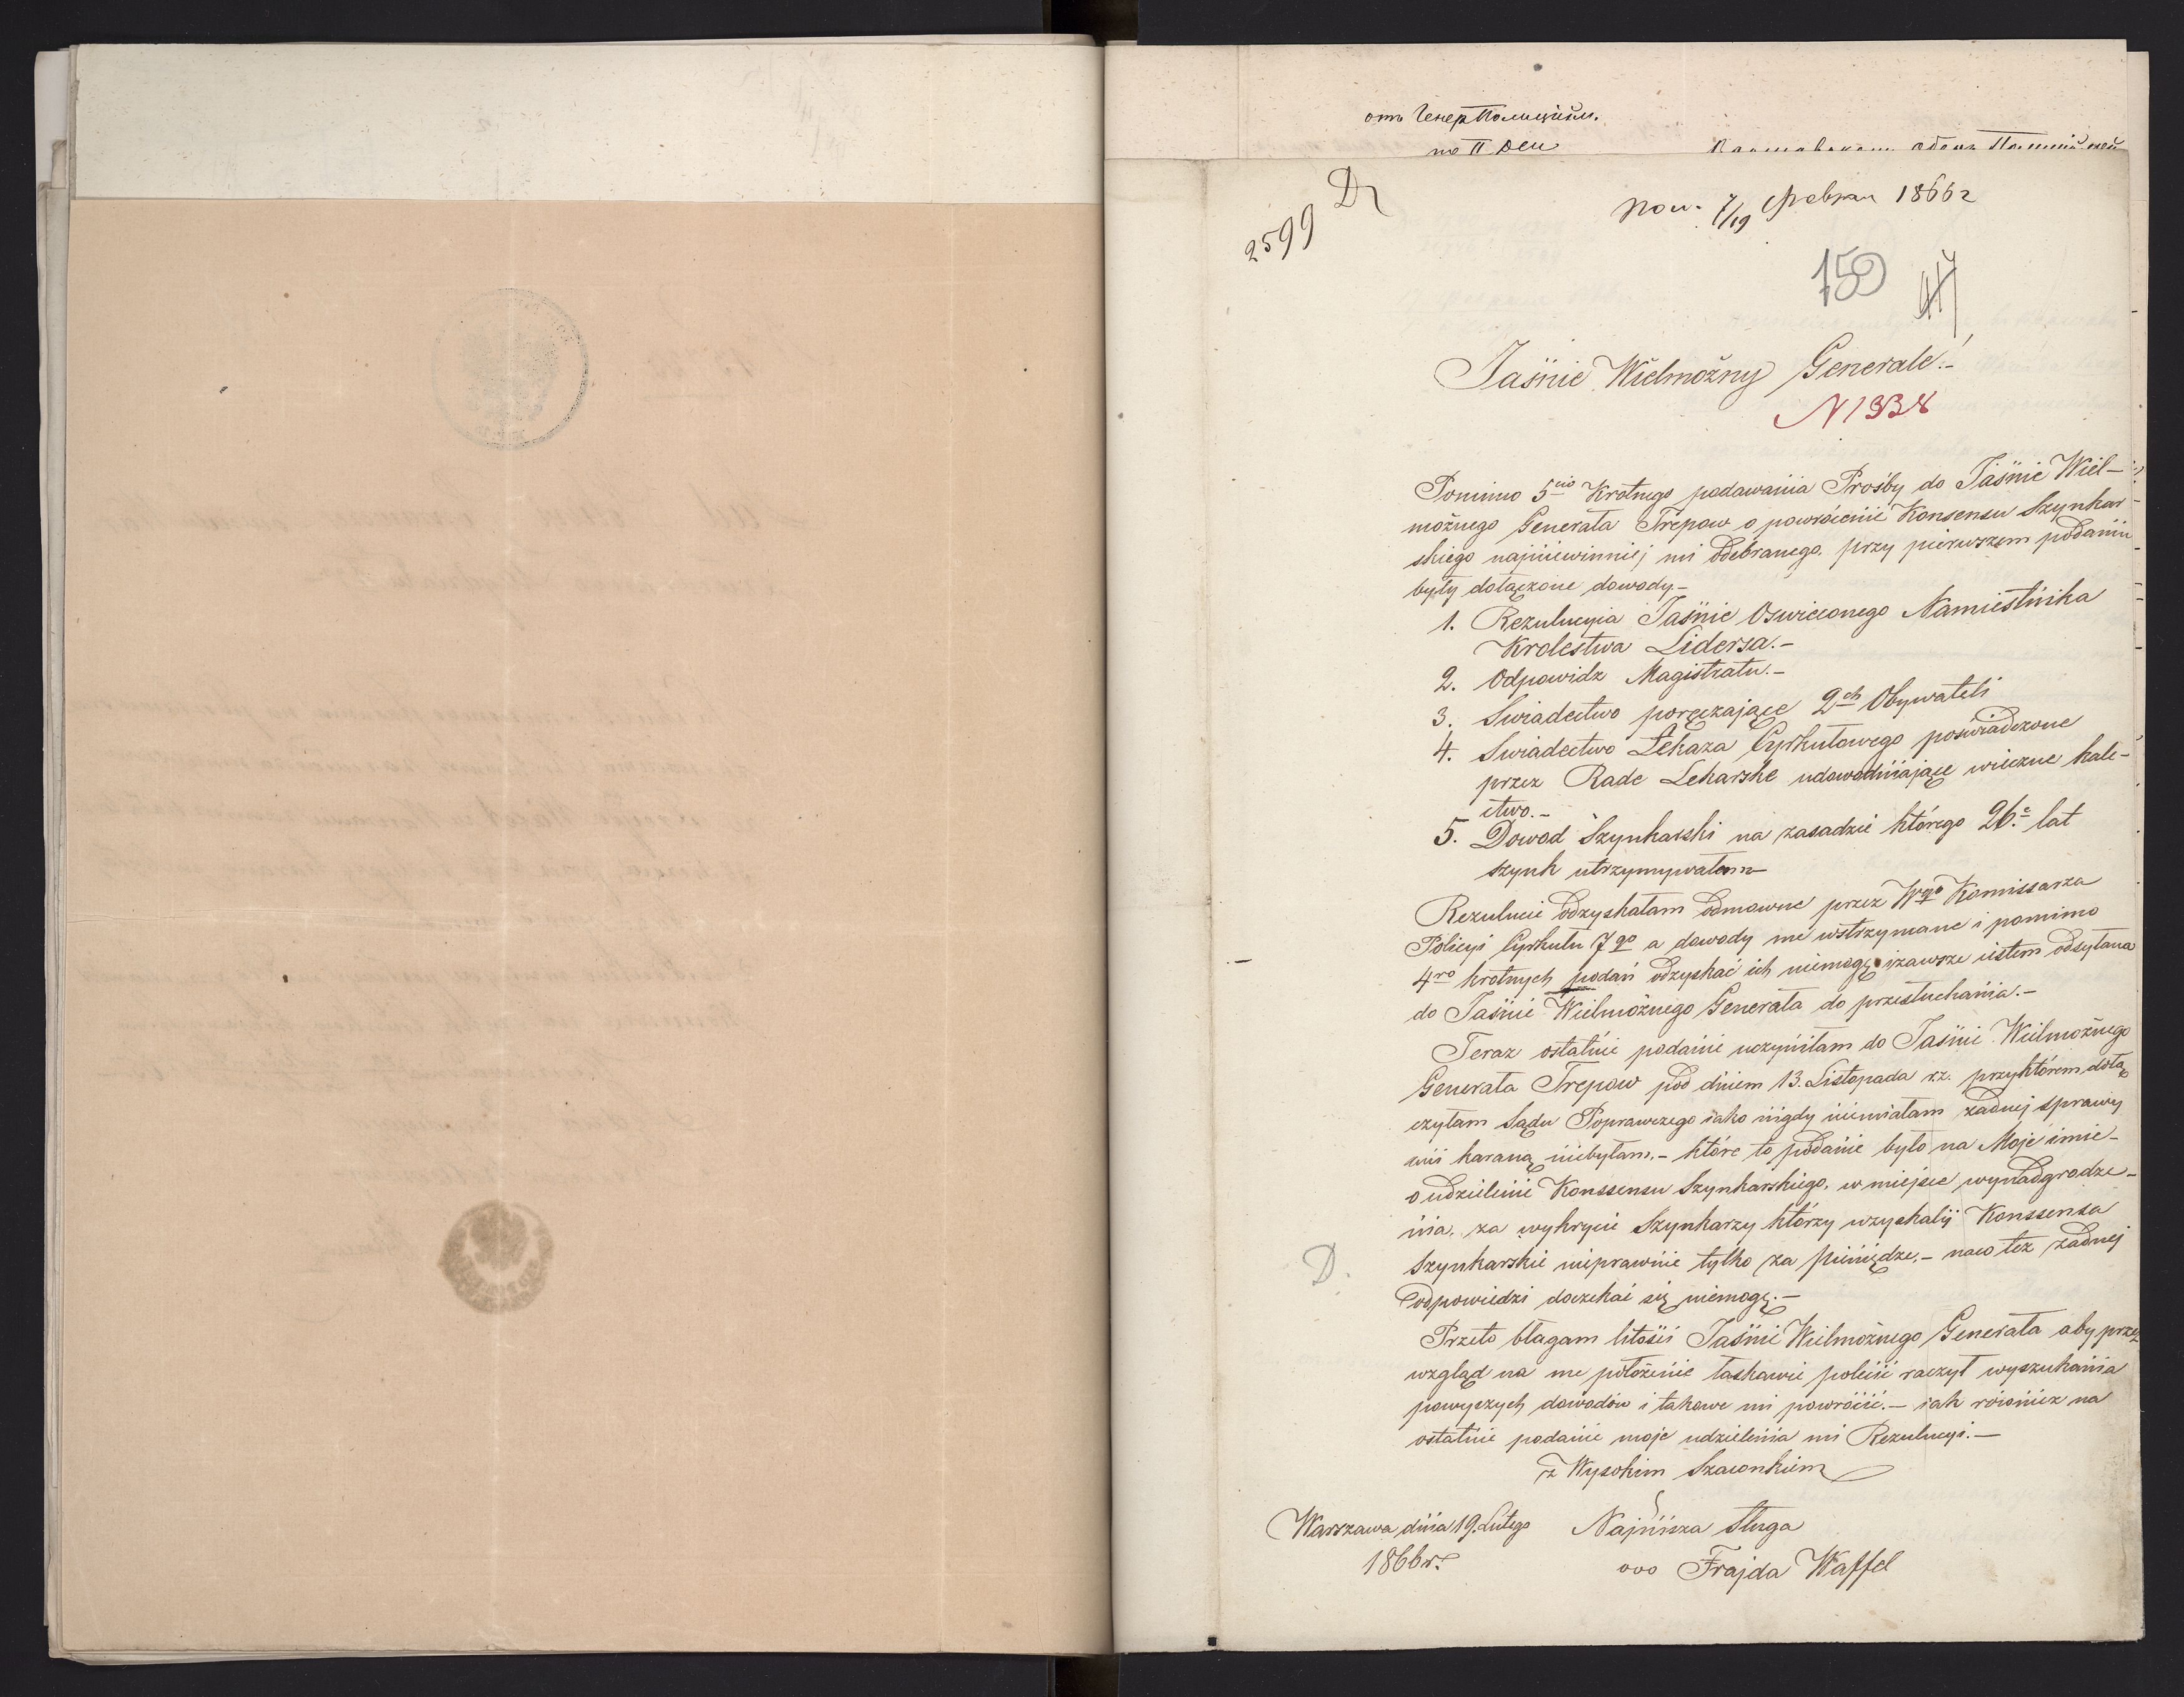 отъ Генер Полиций.
по II Дел
2599 D
Пол. 7/19 Феврал 1866 г
150
Jaśnie Wielmożny Generale!-
N 1338
Pomimo 5cio Krotnego podawania Prośby do Jaśnie Wiel-
możnego Generała Trepow o powrócenie Konsensu Szynkar-
skiego najniewinniej mi odebranego, przy pierwszem podaniu
były dołączone dowody.-
1. Rezulucyia Jaśnie Oswieconego Namiestnika
Krolestwa Lidersa.-
2. Odpowidz Magistratu.-
3. Swiadectwo poręczające 2ch Obywateli
4. Swiadectwo Lekaza Cyrkułowego poświadczone
przez Rade Lekarske udowodniające wieczne kale-
ctwo.-
5. Dowod Szynkarski na zasadzie którego 26.e lat
szynk utrzymywałem
Rezulucie odzyskałam odmowne przez Wgo Komissarza
Policyi Cyrkułu 7go a dowody me wstrzymane i pomimo
4ro krotnych podań odzyskać ich niemogę izawsze iestem odsyłana
do Jaśnie Wielmożnego Generała do przesłuchania.-
Teraz ostatnie podanie uczyniłam do Jaśnie Wielmożnego
Generała Trepow pod dniem 13. Listopada r.z. przyktórem dołą
czyłam Sądu Poprawczego iako nigdy niemiałam żadnej sprawy
ani karaną niebyłam.- które to podanie było na Moje imie-
o udzielenie Konssensu Szynkarskiego, w miejsce wynadgrodze-
nia, za wykrycie Szynkarzy którzy uzyskali Konssensa
Szynkarskie nieprawnie tylko za pieniędze.- naco też żadnej
D.
odpowiedzi doczekać się niemogę.-
Przeto błagam litości Jaśnie Wielmożnego Generała aby przez
wzgląd na me położenie łaskawie polecić raczył wyszukania
powyszych dowodów i takowe mi powrócić.- iak również na
ostatnie podanie moje udzielenia mi Rezulucyi.-
z Wysokim Szacunkiem
Warszawa dnia 19. Lutego Najniższa Sługa
1866 r. ooo Frajda Waffel